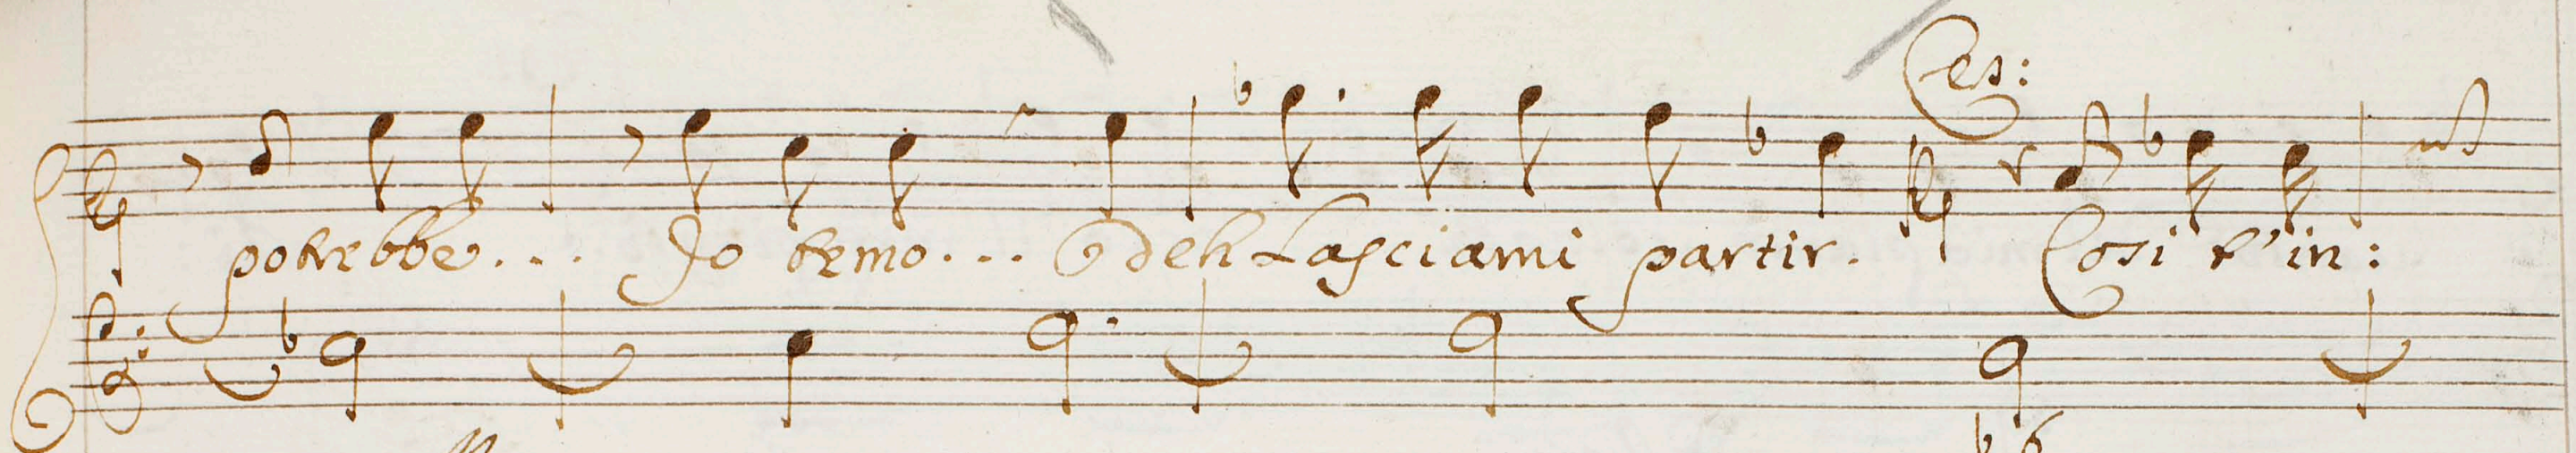 Ces:
potrebbe... Io temo... O deh Lasciami partir. Cosi t'in:
b 6